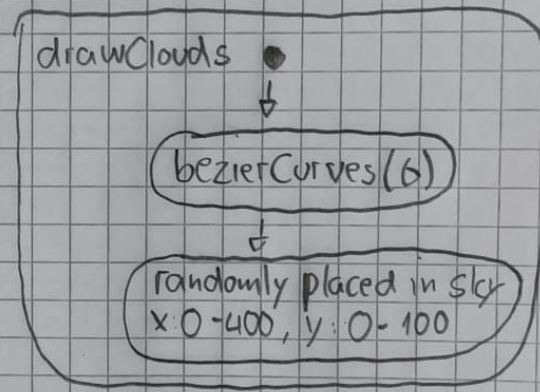 drawClouds
bezierCurves(6)
randomly placed in sky
x:0-400, y:0-100